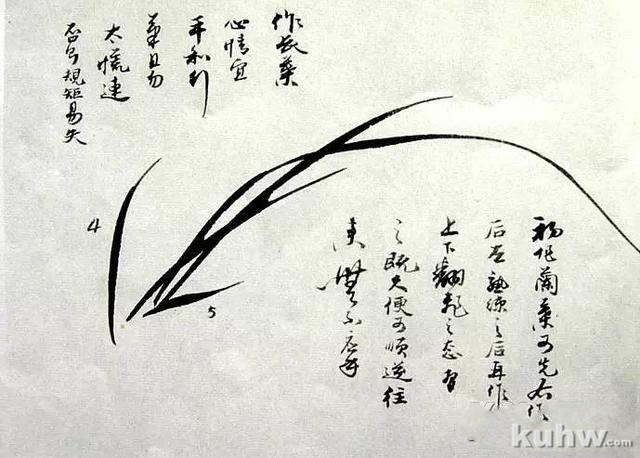 作长葉
心情宜
平和行
筆且勿
太慌速
否则規矩易失
4
5
初作蘭葉可先右作
后左熟練之后再作
上下翻之态習
之既久便可順逆往
来無不應手
kuhw.com